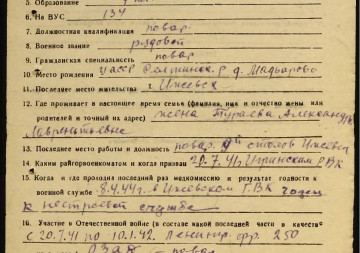 5. Образование
6. На ВУС 134
7. Должностная квалификация повар
8. Военное звание рядовой
9. Гражданская специальность повар
10. Место рождения уасср р. д. Мадьарово
11. Последнее место жительства г Ижевск
12. Где проживает в настоящее время семья (фамилия, имя и отчество жены или
родителей и точный их адрес) жена Тураева Александра
Лаврентьевна
13. Последнее место работы и должность повар столов Ижевск
14. Каким райгорвоенкоматом и когда призван 20.7.41 Игринским РВК
15. Когда и где проходил последний раз медкомиссию и результат годности к
военной службе 8.4.44 г. в Ижевском ГВК годен
к нестроевой службе
16. Участие в Отечественной войне (в составе какой последней части в качестве
с 20.7.41 по 10.1.42. Ленингр. фр. 250
ОЗАД - повар